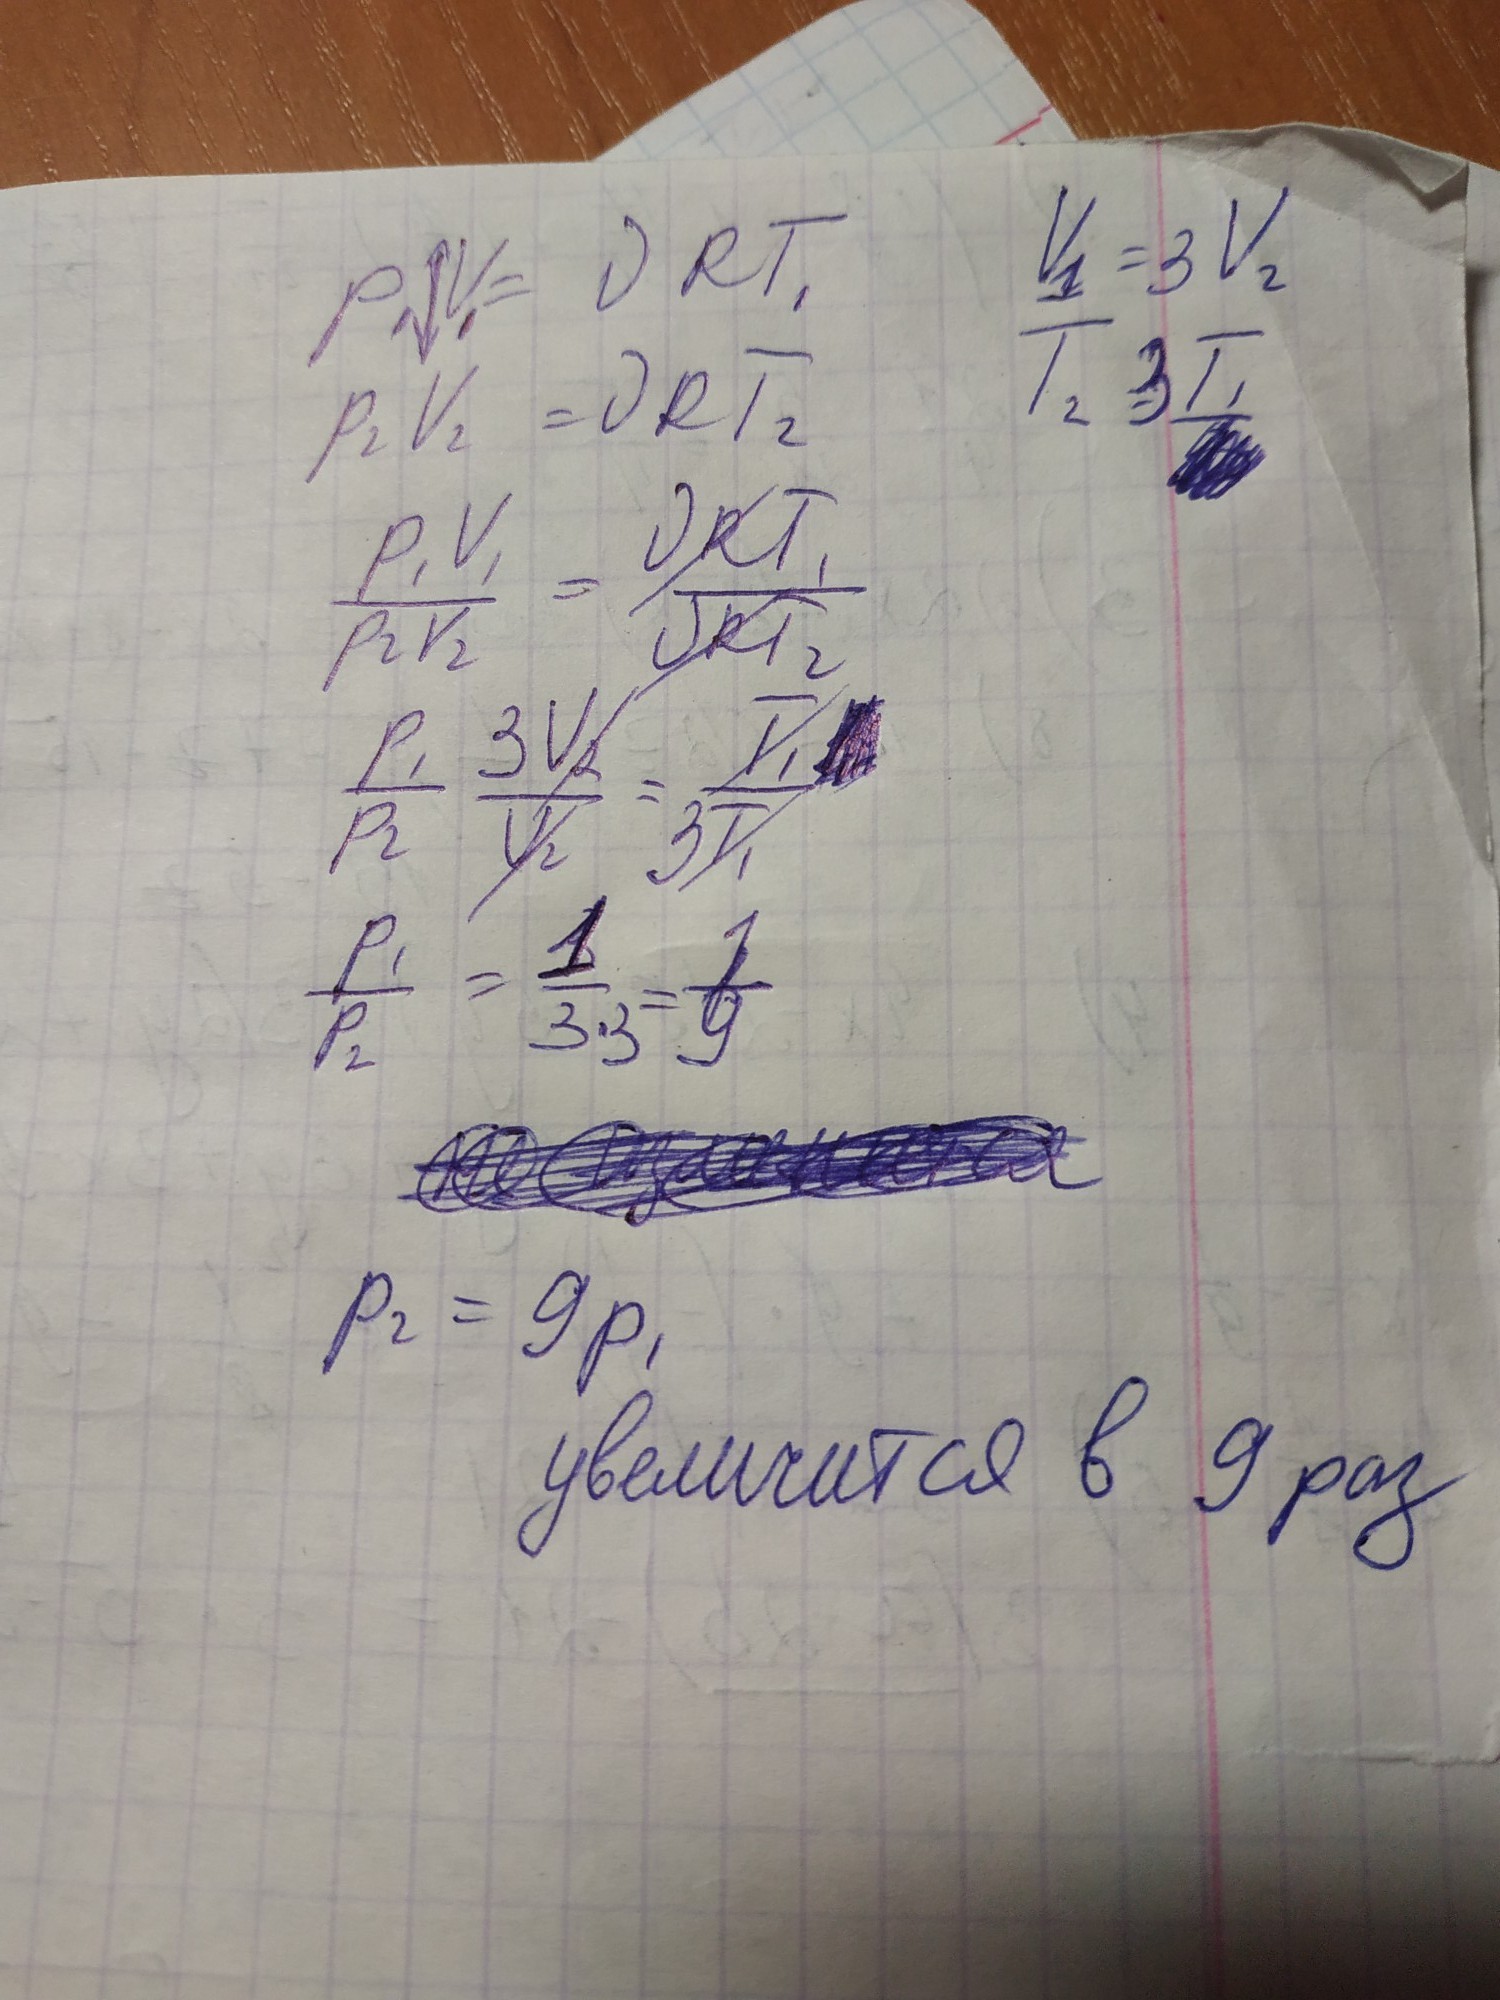 p₁V₁ = νRT₁
V₁ = 3V₂
p₂V₂ = νRT₂
T₂ = 3T₁
p₁V₁/p₂V₂ = νRT₁/νRT₂
p₁/p₂ 3V₂/V₂ = T₁/3T₁
p₁/p₂ = 1/3·3 = 1/9
p₂ = 9p₁
увеличится в 9 раз